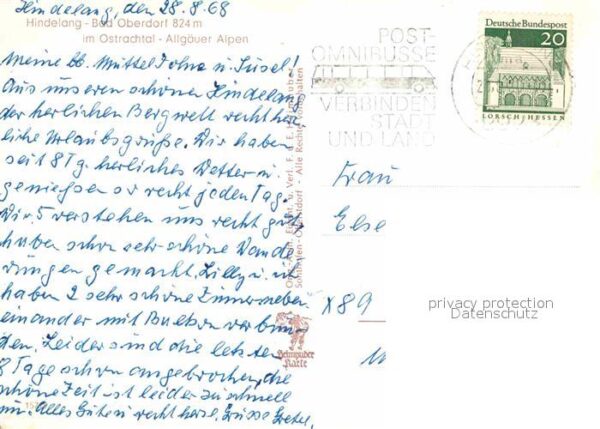 Hindelang, den 28.8.68
Hindelang - Bad Oberdorf 824 m
im Ostrachtal - Allgäuer Alpen
Meine lb. Mutti Dohne u. Susel!
Aus unseren schönen Hindelang
der herlichen Bergwelt recht herz-
liche Urlaubsgrüße. Wir haben
seit 8 Tg. herliches Wetter u.
genießen es recht jeden Tag.
Wir 5 verstehen uns recht gut,
haben schon sehr schöne Wande
rungen gemacht. Lilly u. ich
haben 2 sehr schöne Zimmer neben
einander mit Balkon verbun-
den. Leider sind die letzten
8 Tage schon angebrochen, die
schöne Zeit ist leider zu schnell
um. Alles Guten u. recht herzl. Grüsse Gretel.
Heimhuber
Karte
POST-
OMNIBUSSE
VERBINDEN
STADT
UND LAND
Deutsche Bundespost
20
LORSCH/HESSEN
Frau
Else
x89
privacy protection
Datenschutz